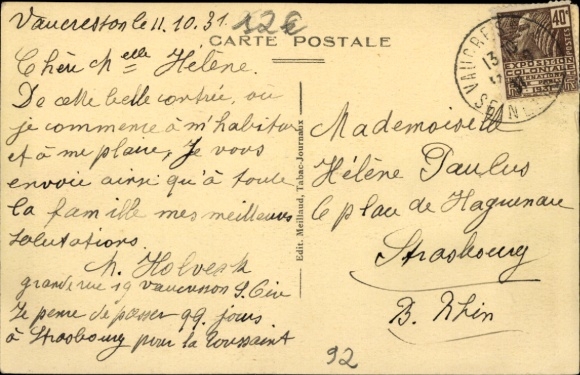 Vaucresson le 11.10.31.
12€
CARTE POSTALE
Chère Melle Hélène.
De cette belle contrée, où
je commence à m'habituer
et à me plaire, Je vous
envoie ainsi qu'à toute
la famille mes meilleurs
salutations.
grande rue 19 Vaucresson S. Oise
Je pense de passer qq. jours
à Strasbourg pour la Toussaint
Edit. Meillaud, Tabac-Journaux
40c
POSTES
EXPOSITION
COLONIALE
INTERNATIONALE
PARIS 1931
VAUCRESSON
SEINE
Mademoiselle
Hélène Paulus
6 place de Haguenau
Strasbourg
B. Rhin
92